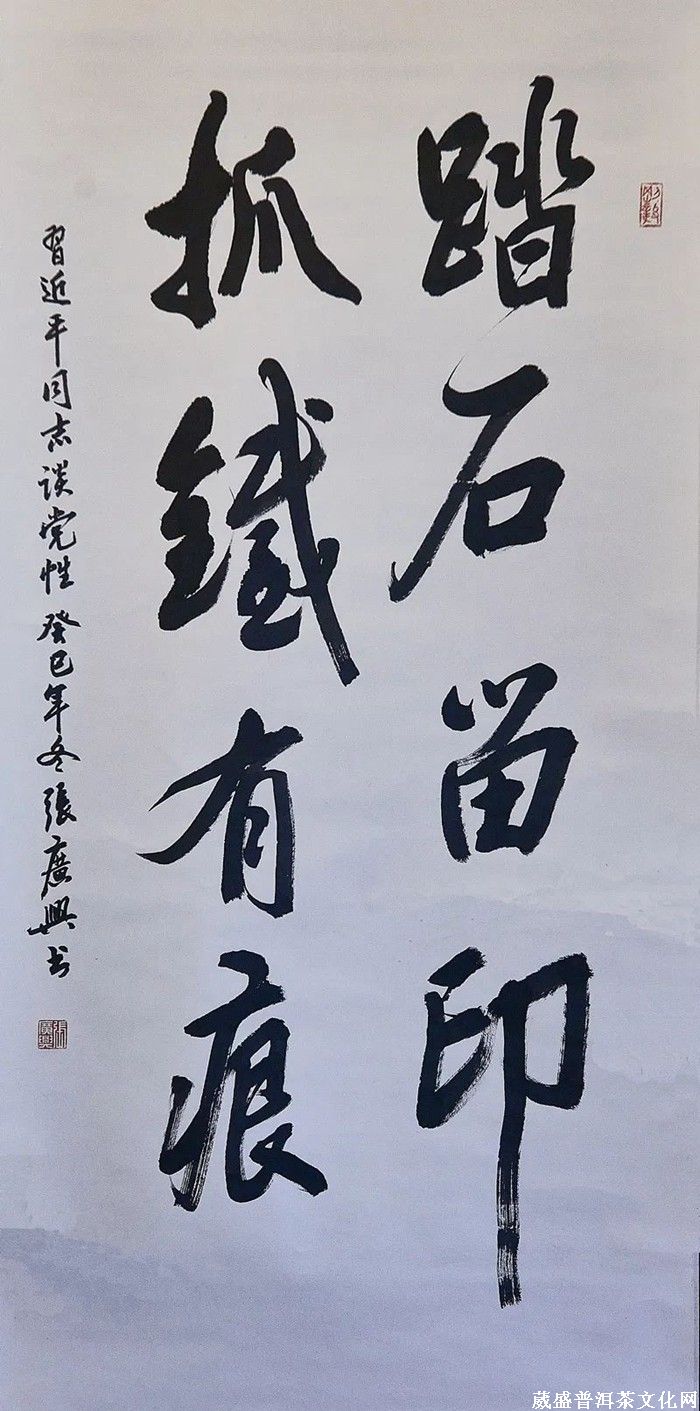 踏石留印
抓鐵有痕
習近平同志谈党性 癸巳年冬 張廣興书
張廣興
葳盛普洱茶文化网